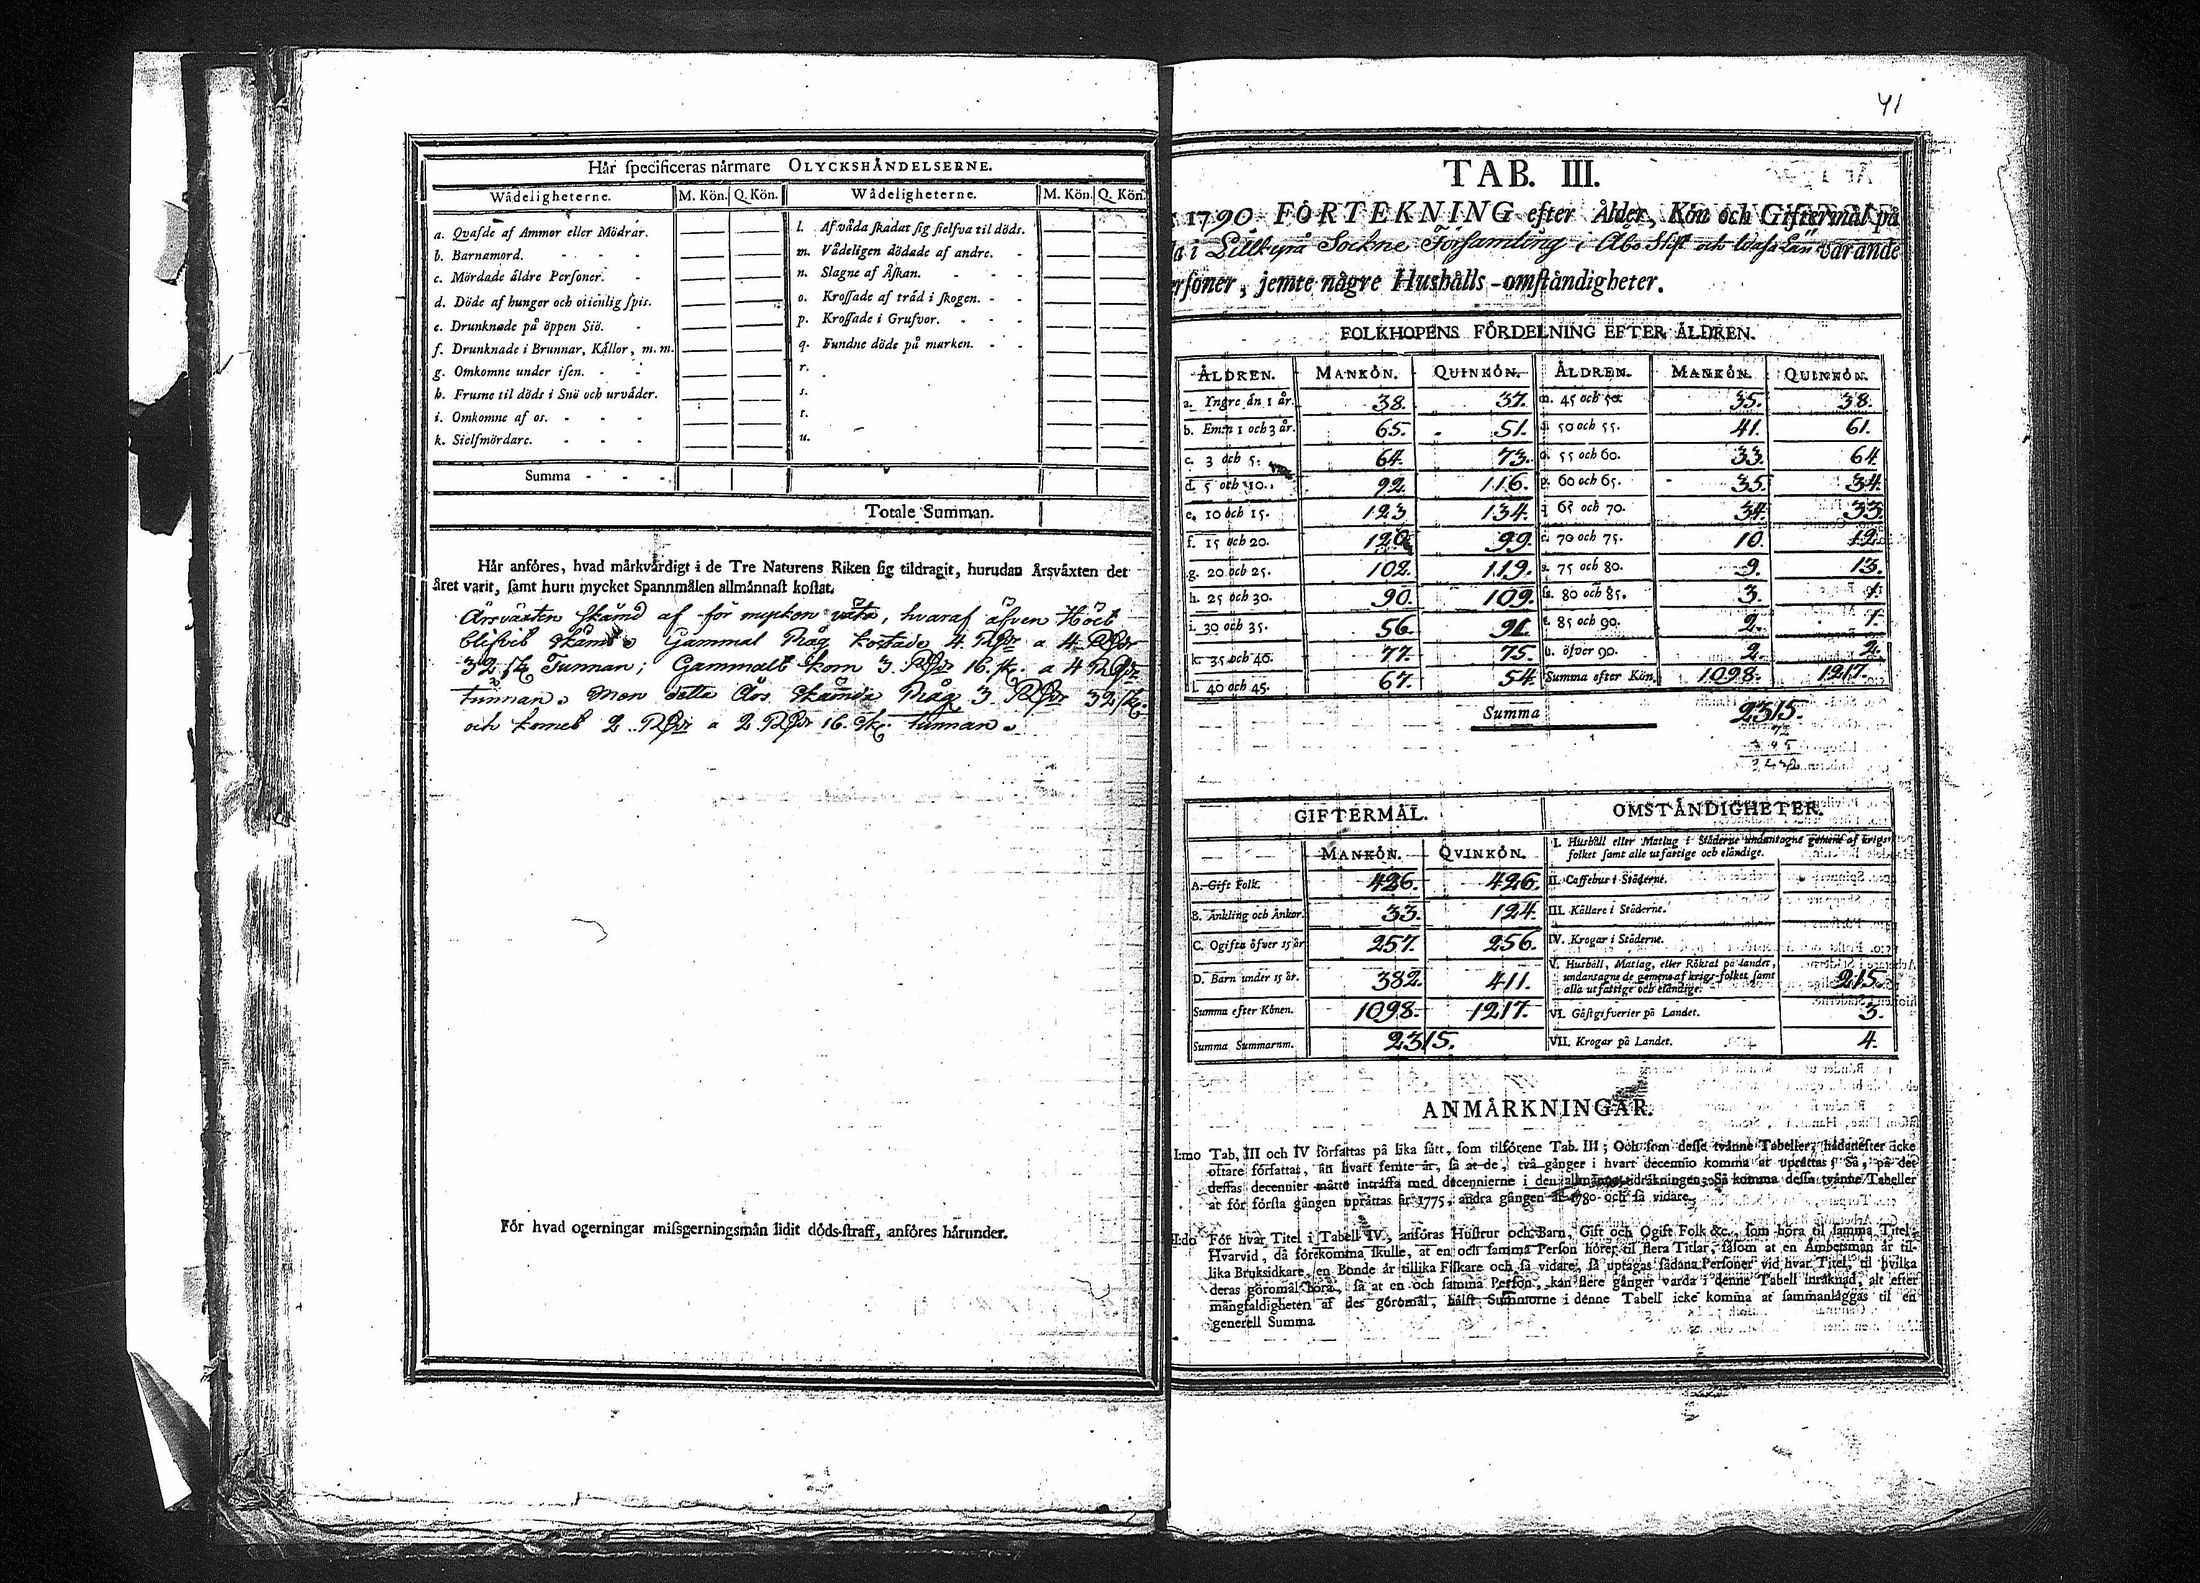 Hår ſpecificeras nårmare OLYCKSHÅNDELSERNE.
Wådeligheterne. M. Kön. Q. Kön. Wådeligheterne. M. Kön. Q. Kön.
a. Qvafde af Ammor eller Mödrar. l. Af våda ſkadat ſig ſielfva til döds.
b. Barnamord. m. Vådeligen dödade af andre.
c. Mördade äldre Perſoner. n. Slagne af Åſkan.
d. Döde af hunger och otienlig ſpis. o. Kroſſade af träd i ſkogen.
e. Drunknade på öppen Siö. p. Kroſſade i Grufvor.
f. Drunknade i Brunnar, Kållor, m. m. q. Fundne döde på marken.
g. Omkomne under iſen. r.
h. Fruſne til döds i Snö och urväder. s.
i. Omkomne af os. t.
k. Sielfmördare. u.
Summa
Totale Summan.
Hår anföres, hvad mårkvårdigt i de Tre Naturens Riken ſig tildragit, hurudan Årsvåxten det
året varit, ſamt huru mycket Spannmålen allmånnaſt koſtat.
Årsväxten skämd af för mycken väta, hvaraf äfven Höet
blifvit skämdt. Gammal Råg kostade 4 Rdr a 4 Rdr
32 sk Tunnan; Gammalt korn 3 Rdr 16 sk. a 4 Rdr
tunnan. Men detta Års skämda Råg 3 Rdr 32 sk.
och kornet 2 Rdr a 2 Rdr 16 sk. tunnan.
För hvad ogerningar miſsgerningsmån lidit döds-ſtraff, anföres hårunder.
41
TAB. III.
1790. FÖRTEKNING efter Ålder, Kön och Giftermål på
i Lillkyrå Sockne Församling i Åbo Stift och Wasa Län varande
rſoner, jemte någre Hushålls-omſtåndigheter.
FOLKHOPENS FÖRDELNING EFTER ÅLDREN.
ÅLDREN. MANKÖN. QUINKÖN. ÅLDREN. MANKÖN. QUINKÖN.
a. Yngre än 1 år. 38. 37. m. 45 och 50. 35. 38.
b. Em:n 1 och 3 år. 65. 51. n. 50 och 55. 41. 61.
c. 3 och 5. 64. 73. o. 55 och 60. 33. 64
d. 5 och 10. 92. 116. p. 60 och 65. 35. 34.
e. 10 och 15. 123 134. q. 65 och 70. 34. 33.
f. 15 och 20. 120. 99. r. 70 och 75. 10. 12.
g. 20 och 25. 102. 119. s. 75 och 80. 9. 13.
h. 25 och 30. 90. 109. 80 och 85. 3. 1.
i. 30 och 35. 56. 91. t. 85 och 90. 2. 1.
k. 35 och 40. 77. 75. u. öfver 90. 2. 2.
l. 40 och 45. 67. 54. Summa efter Kön. 1098. 1217.
Summa 2315.
GIFTERMÅL. OMSTÅNDIGHETER.
MANKÖN. QVINKÖN. I. Hushåll eller Matlag i Städerne undantagne gemene af krigs-
folket ſamt alle utfattige och elåndige.
A. Gift Folk. 426. 426. II. Caffehus i Städerne.
B. Änkling och Änkor. 33. 124. III. Kållare i Städerne.
C. Ogifta öfver 15 år 257. 256. IV. Krogar i Städerne.
D. Barn under 15 år. 382. 411. V. Hushåll, Matlag, eller Röktal på landet,
undantagne de gemene af krigs-folket ſamt
alla utfattige och elåndige. 215.
Summa efter Könen. 1098. 1217. VI. Gåſtgifverier på Landet. 3.
Summa Summarum. 2315. VII. Krogar på Landet. 4.
ANMÅRKNINGAR.
I:mo Tab. III och IV författas på lika ſått, ſom tilförene Tab. III; Och ſom deſſe tvånne Tabeller, hådanefter icke
oftare författas, ån hvart femte år, ſå at de, två gånger i hvart decennio komma at upråttas; Så, på det
deſſas decennier måtte intråffa med decennierne i den allmånna tidråkningen; Så komma deſſa tvånne Tabeller
at för förſta gången upråttas år 1775, andra gången år 1780 och ſå vidare.
II:do För hvar Titel i Tabell IV, anföras Huſtrur och Barn, Gift och Ogift Folk &c., ſom höra til ſamma Titel;
Hvarvid, då förekomma ſkulle, at en och ſamma Perſon hörer til flera Titlar, ſåſom at en Åmbetsman år til-
lika Bruksidkare, en Bonde år tillika Fiſkare och ſå vidare, ſå uptagas ſådana Perſoner vid hvar Titel, til hvilka
deras göromål höra, ſå at en och ſamma Perſon, kan flere gånger varda i denne Tabell inråknad, alt efter
mångfaldigheten af des göromål, hålſt Summorne i denne Tabell icke komma at ſammanlåggas til en
generell Summa.